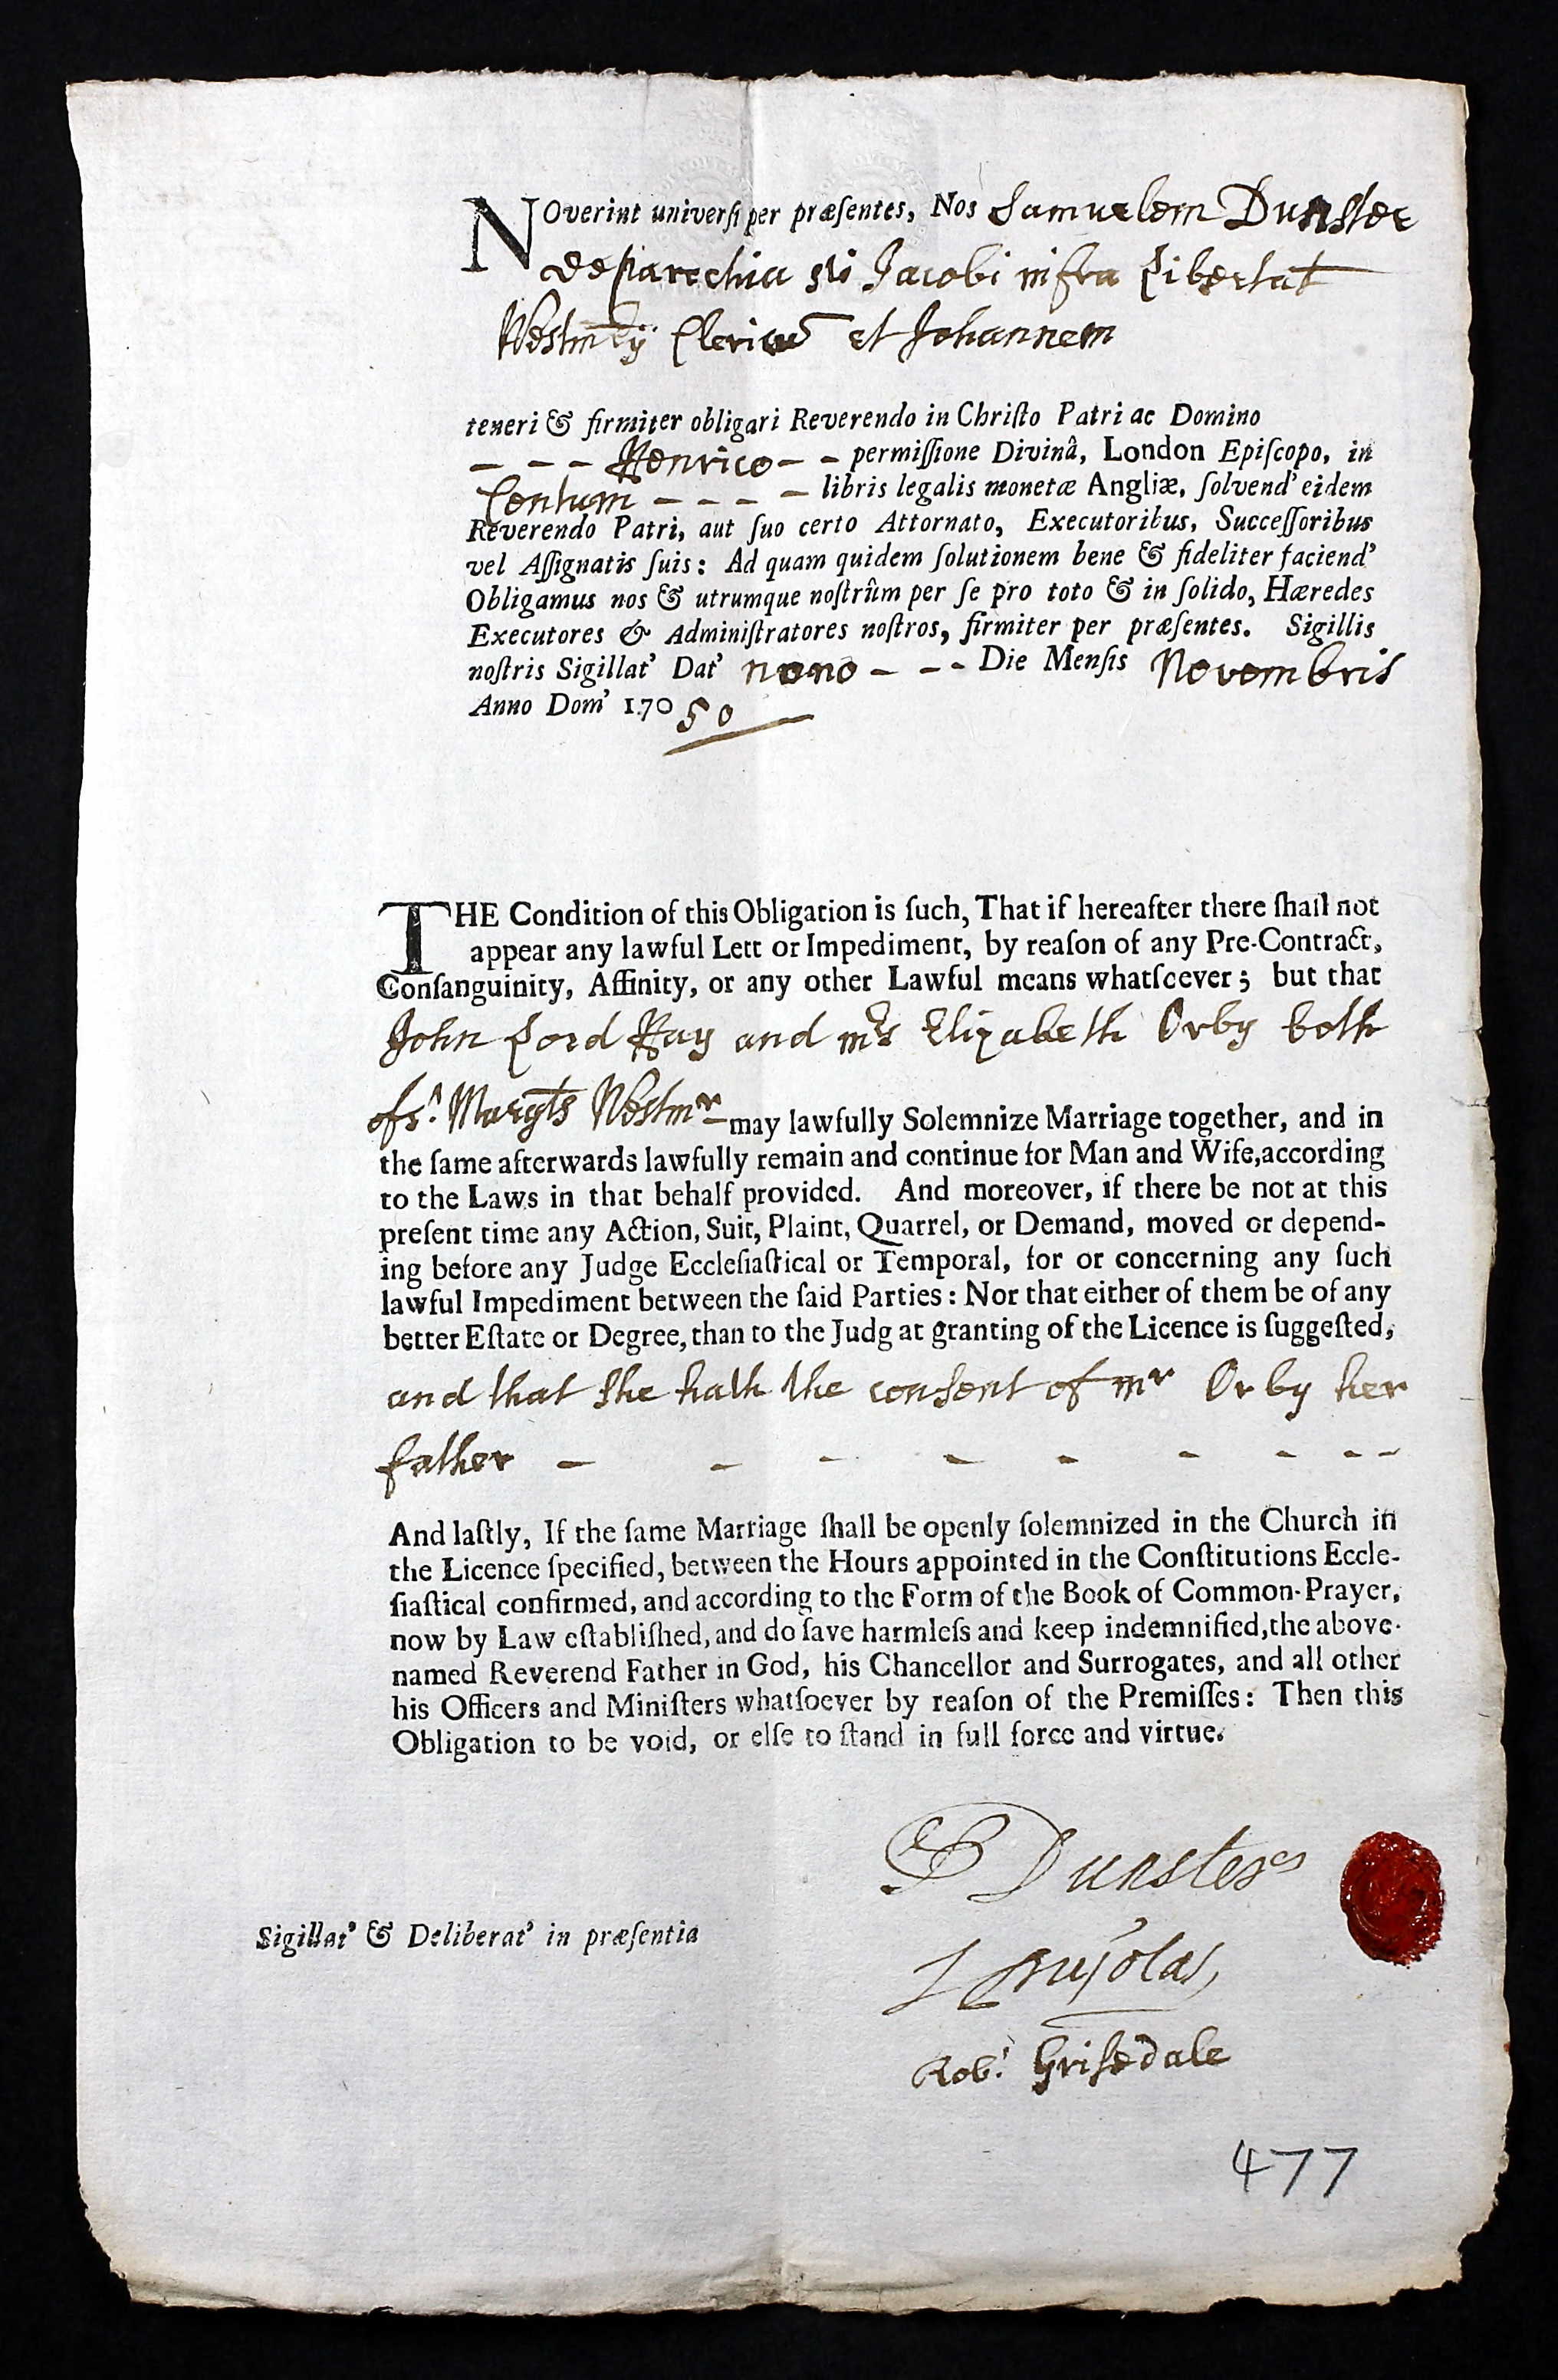 NOverint universi per præsentes, Nos Samuelem Dunster
de parochia sti Jacobi infra Libertat
Westmrij Clericu et Johannem
teneri & firmiter obligari Reverendo in Christo Patri ac Domino
– – – Henrico – – permissione Divinâ, London Episcopo, in
Centum – – – – libris legalis monetæ Angliæ, solvend' eidem
Reverendo Patri, aut suo certo Attornato, Executoribus, Successoribus
vel Assignatis suis: Ad quam quidem solutionem bene & fideliter faciend'
Obligamus nos & utrumque nostrûm per se pro toto & in solido, Hæredes
Executores & Administratores nostros, firmiter per præsentes. Sigillis
nostris Sigillat' Dat' nono – – – Die Mensis Novembris
Anno Dom' 1.70 5o
THE Condition of this Obligation is such, That if hereafter there shall not
appear any lawful Lett or Impediment, by reason of any Pre-Contract,
Consanguinity, Affinity, or any other Lawful means whatsoever; but that
John Lord Hay and mrs Elizabeth Orby both
of st. Margts Westmr may lawfully Solemnize Marriage together, and in
the same afterwards lawfully remain and continue for Man and Wife, according
to the Laws in that behalf provided. And moreover, if there be not at this
present time any Action, Suit, Plaint, Quarrel, or Demand, moved or depend-
ing before any Judge Ecclesiastical or Temporal, for or concerning any such
lawful Impediment between the said Parties: Nor that either of them be of any
better Estate or Degree, than to the Judg at granting of the Licence is suggested,
and that she hath the consent of mr Orby her
father – – – – – – – – –
And lastly, If the same Marriage shall be openly solemnized in the Church in
the Licence specified, between the Hours appointed in the Constitutions Eccle-
siastical confirmed, and according to the Form of the Book of Common-Prayer,
now by Law established, and do save harmless and keep indemnified, the above-
named Reverend Father in God, his Chancellor and Surrogates, and all other
his Officers and Ministers whatsoever by reason of the Premisses: Then this
Obligation to be void, or else to stand in full force and virtue.
S Dunster
Sigillat' & Deliberat' in præsentia
Robt Grisedale
477